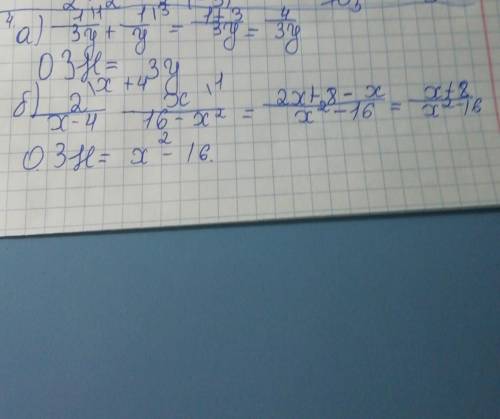 4 а) 1\¹/3y + 1\³/y = 1+3/3y = 4/3y
ОЗН = 3y
б) 2\x+4/x-4 x\1/16-x² = 2x+8-x/x²-16 = x+8/x²-16
ОЗН = x²-16.